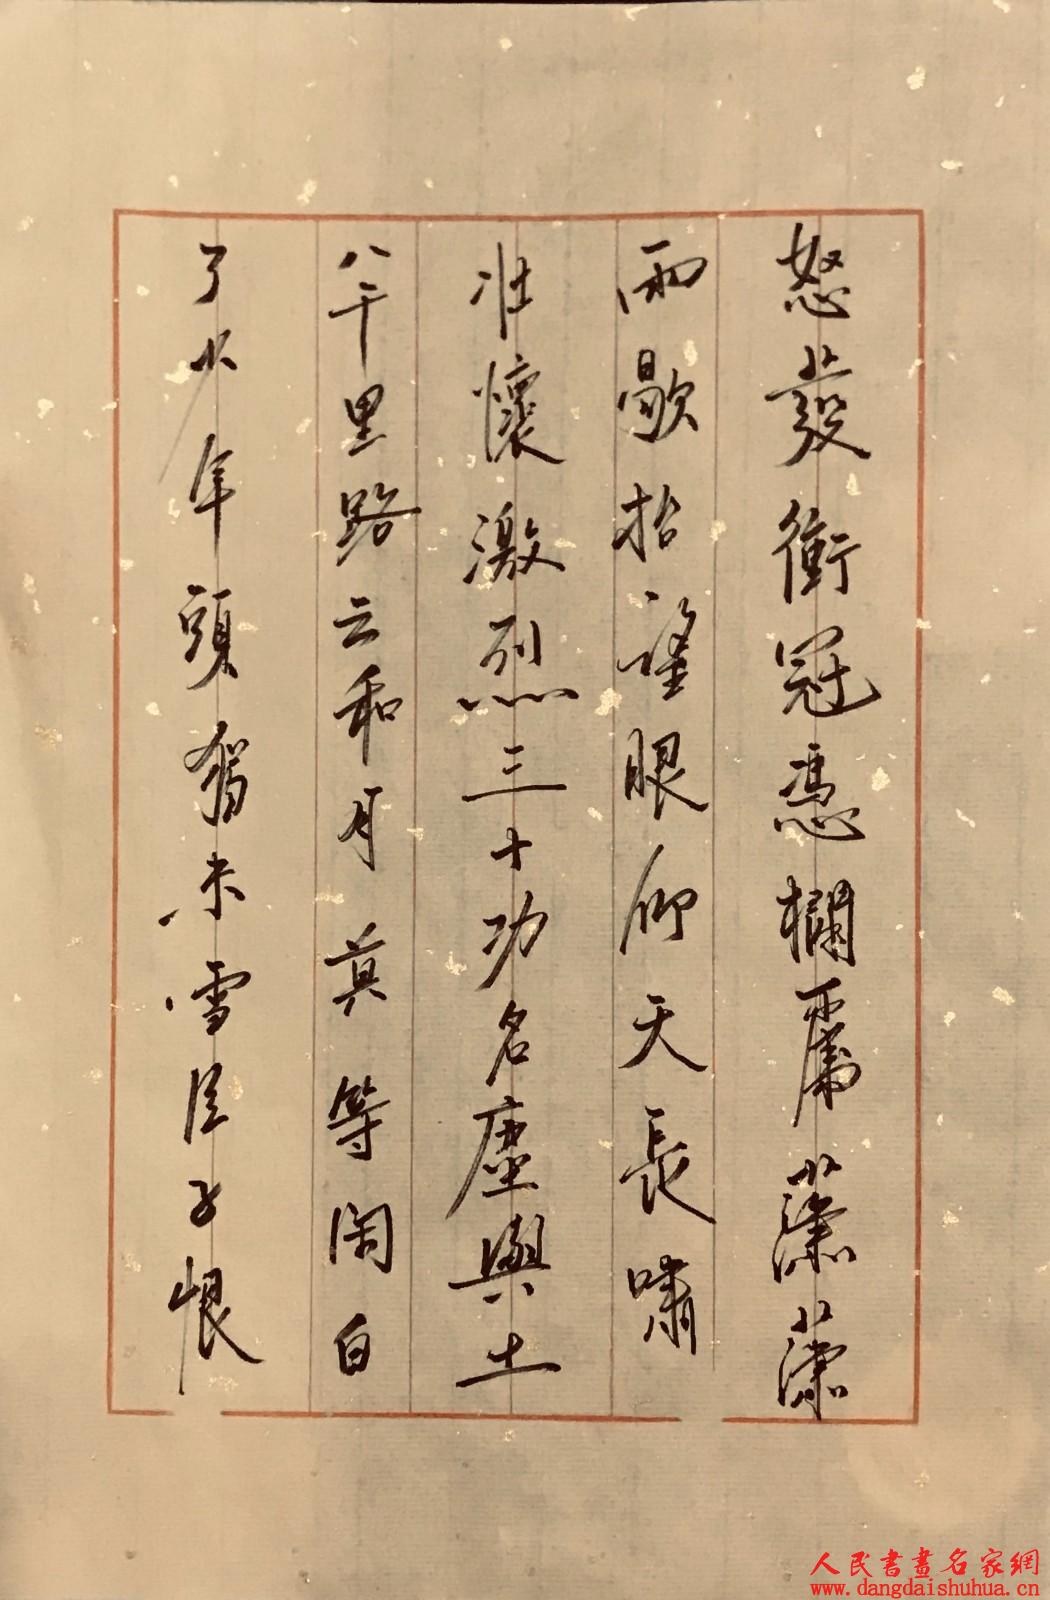 怒發衝冠憑欄處瀟瀟
雨歇抬望眼仰天長嘯
壮懷激烈三十功名塵與土
八千里路云和月莫等闲白
了少年頭猶未雪臣子恨
人民書畫名家網
www.dangdaishuhua.cn